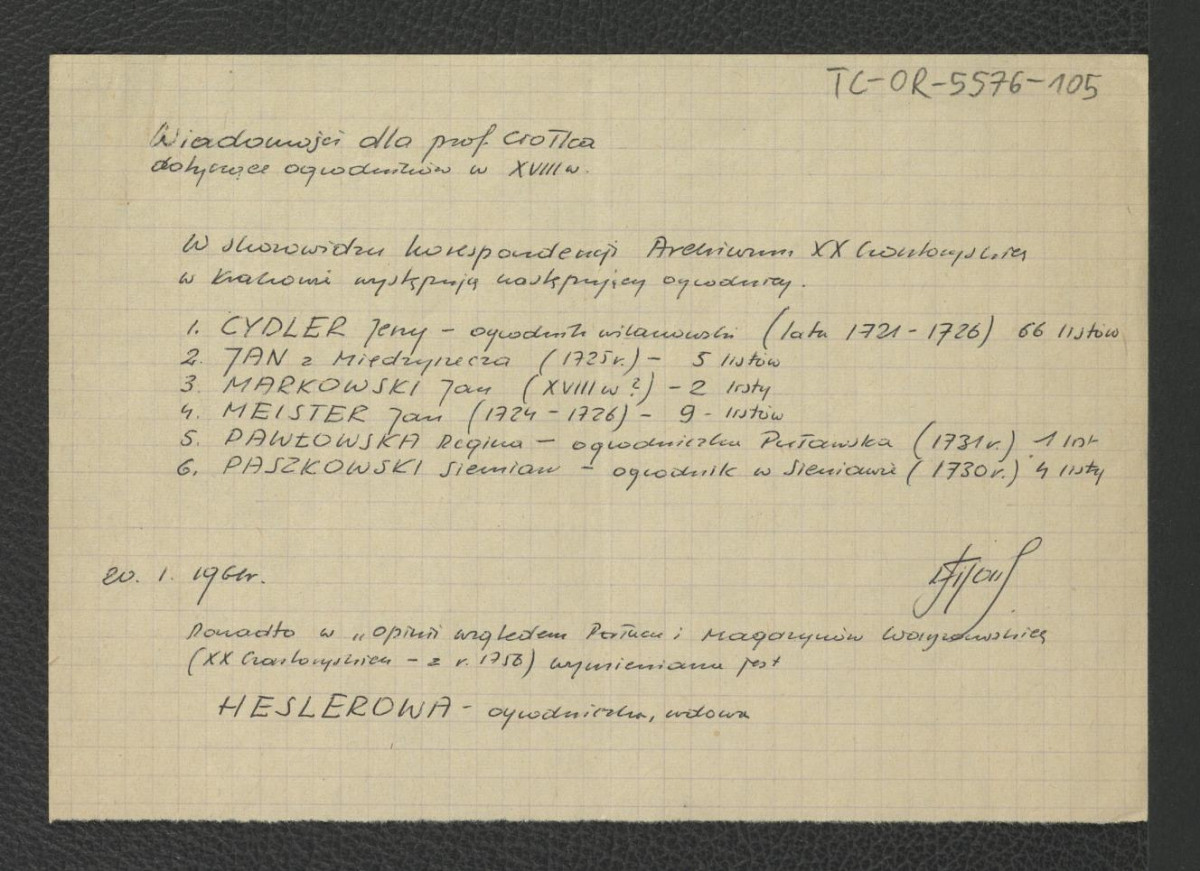 TC-OR-5576-105
Wiadomości dla prof. Ciołka
dotyczące ogrodników w XVIII w.
W skorowidzu korespondencji Archiwum XX Czartoryskich
w Krakowie występują następujący ogrodnicy.
1. CYDLER Jerzy - ogrodnik wilanowski (lata 1721 - 1726) 66 listów
2. JAN z Międzyrzecza (1725 r.) - 5 listów
3. MARKOWSKI Jan (XVIII w ?) - 2 listy
4. MEISTER Jan (1724 - 1726) - 9 - listów
5. PAWŁOWSKA Regina - ogrodniczka Puławska (1731 r.) 1 list
6. PASZKOWSKI Siemian - ogrodnik w Sieniawie (1730 r.) 4 listy
20. 1. 1961r.
Ponadto w „Opinii względem Pałacu i Magazynów Warszawskich
(XX Czartoryskich - z r. 1756) wymieniana jest
HESLEROWA - ogrodniczka, wdowa